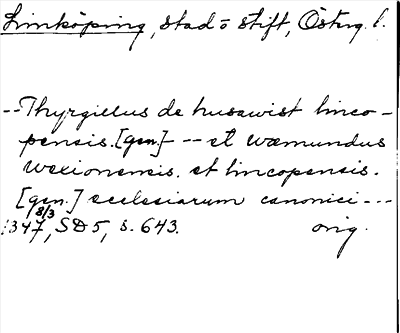 Linköping, stad o stift, Österg. l.
-- Thyrgillus de husawist linco-
pensis. [gen.] -- et wæmundus
wexionensis. et lincopensis.
[gen.] ecclesiarum canonici ---
8/3
1347, SD 5, s. 643. orig.